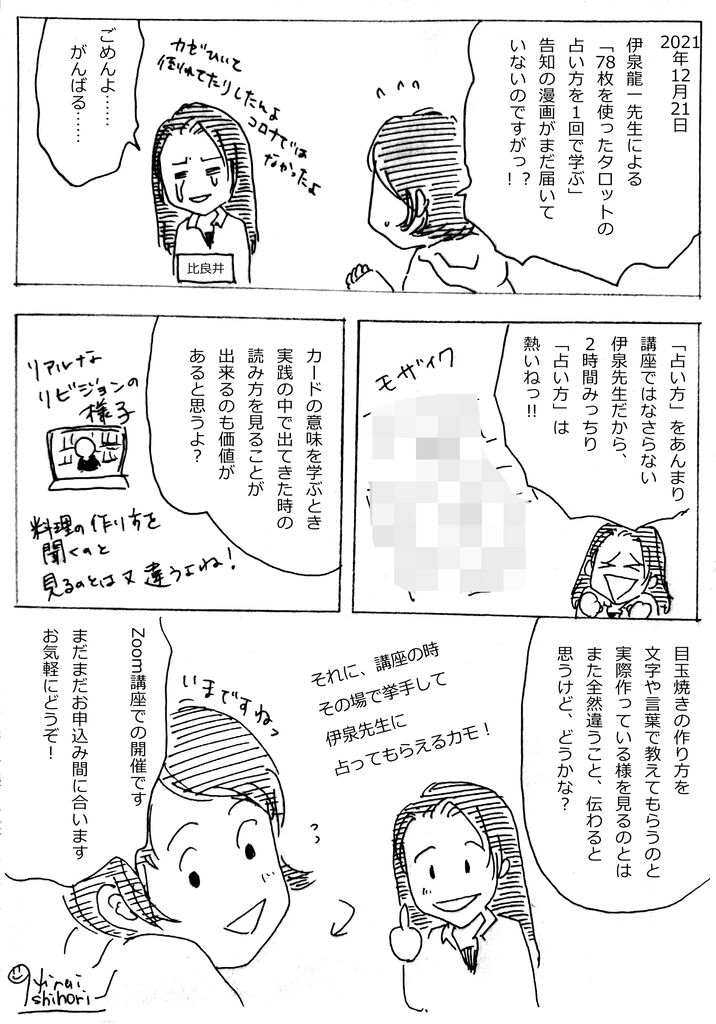 2021
年12月21日
伊泉龍一先生による
「78枚を使ったタロットの
占い方を1回で学ぶ」
告知の漫画がまだ届いて
いないのですがっ?!
カゼひいて
倒れてたりしたんよ
コロナでは
なかったよ
ごめんよ……
がんばる……
比良井
「占い方」をあんまり
講座ではなさらない
伊泉先生だから、
2時間みっちり
「占い方」は
熱いねっ!!
モザイク
カードの意味を学ぶとき
実践の中で出てきた時の
読み方を見ることが
出来るのも価値が
あると思うよ?
リアルな
リビジョンの
様子
料理の作り方を
聞くのと
見るのとは又違うよね!
目玉焼きの作り方を
文字や言葉で教えてもらうのと
実際作っている様を見るのとは
また全然違うこと、伝わると
思うけど、どうかな?
それに、講座の時
その場で挙手して
伊泉先生に
占ってもらえるカモ!
いまですねっ
Zoom講座での開催です
まだまだお申込み間に合います
お気軽にどうぞ!
yirai
shihori